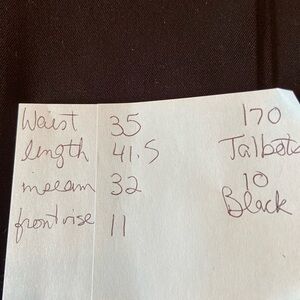 Waist 35 170
length 41.5 Talbots
inseam 32 10
front rise 11 Black